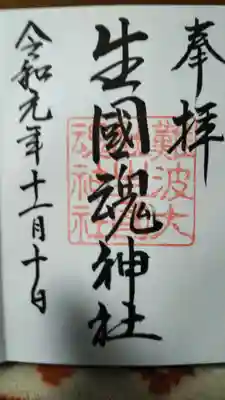 奉拝
生國魂神社
令和元年十一月十日
難波大
社生國
魂神社